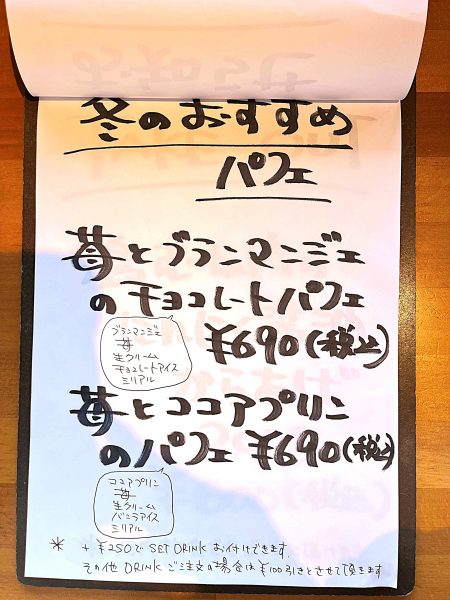 冬のおすすめ
パフェ
苺とブランマンジェ
のチョコレートパフェ
¥690(税込)
ブランマンジェ
苺
生クリーム
チョコレートアイス
ミリアル
苺とココアプリン
のパフェ ¥690(税込)
ココアプリン
苺
生クリーム
バニラアイス
ミリアル
* + ¥250で SET DRINK お付けできます。
その他 DRINK ご注文の場合は¥100引きとさせて頂きます